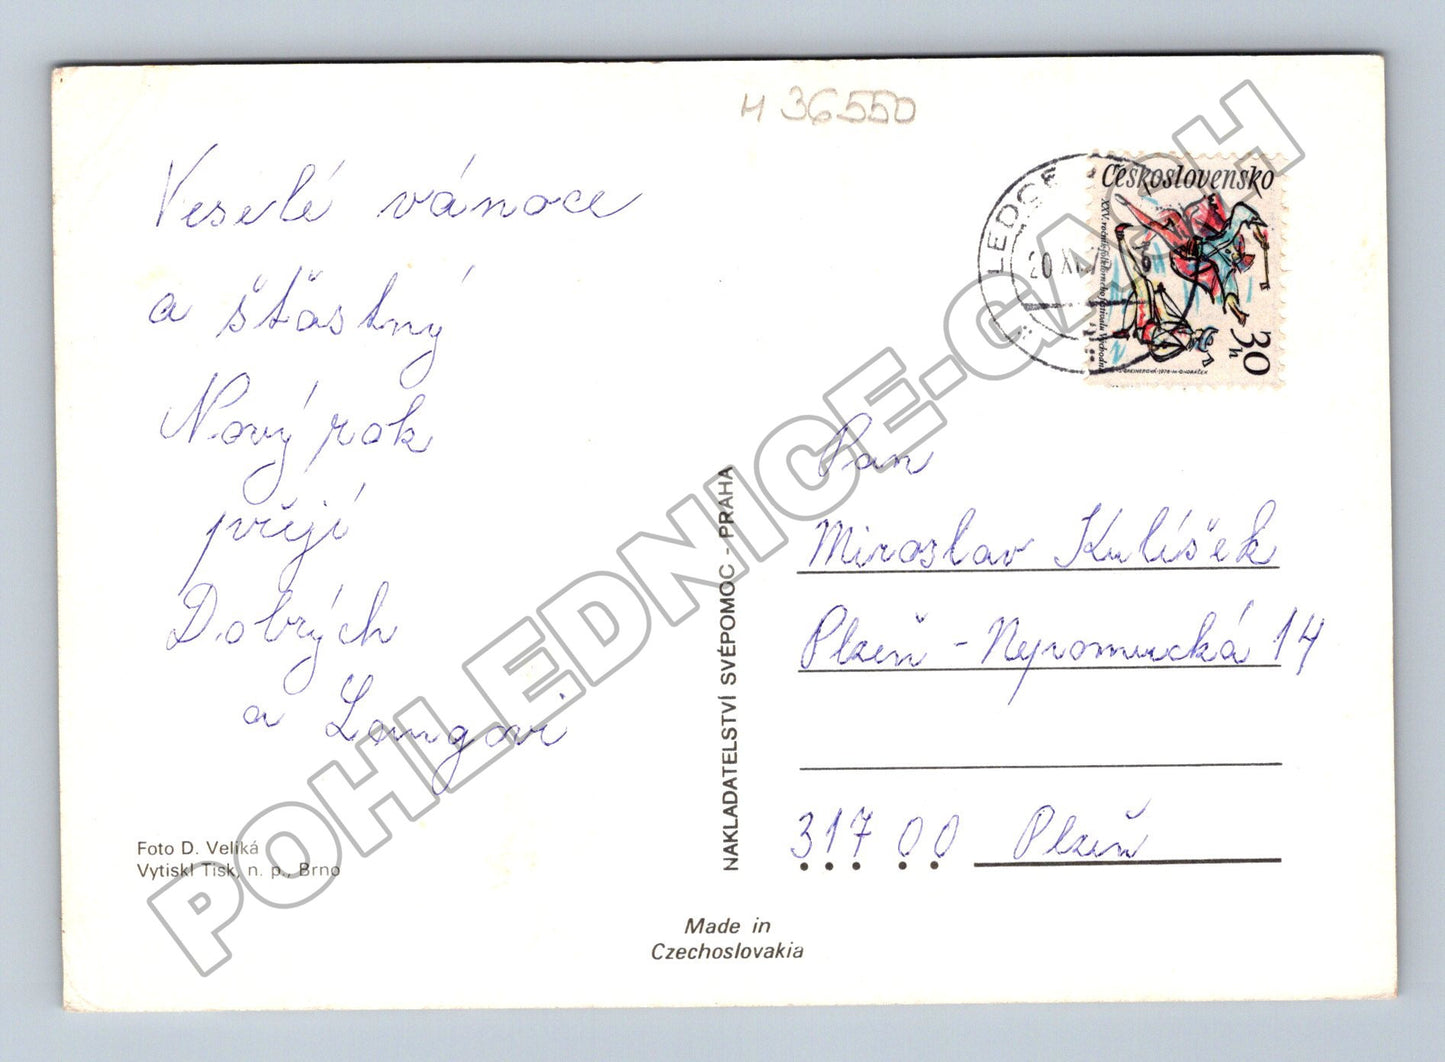 H 36550
Veselé vánoce
a šťastný
Nový rok
přejí
Dobrých
a Langovi
Foto D. Veliká
Vytiskl Tisk, n. p., Brno
NAKLADATELSTVÍ SVÉPOMOC - PRAHA
Made in
Czechoslovakia
LEDCE
20 XII
Československo
XXV. ročník folklorného festivalu Východná
30
h
Pan
Miroslav Kulíšek
Plzeň - Nepomucká 14
317 00 Plzeň
POHLEDNICE-GASH